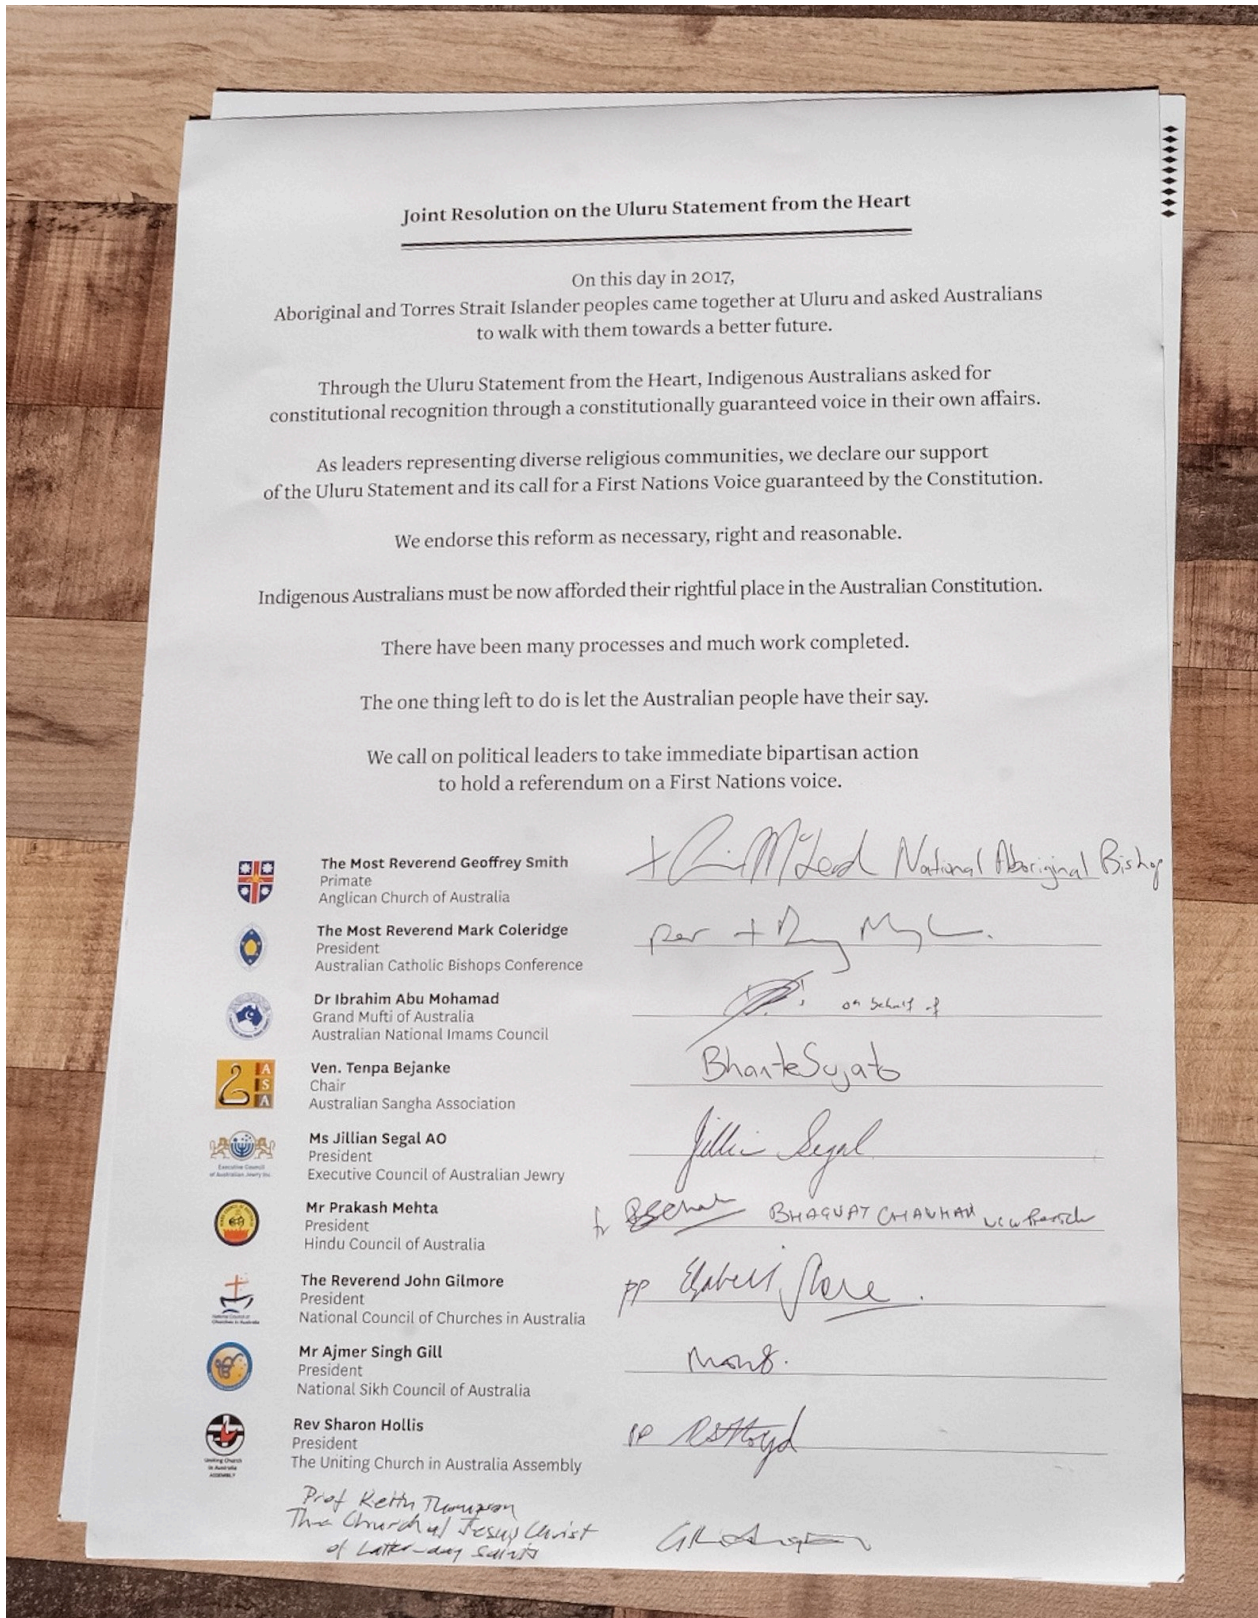 Joint Resolution on the Uluru Statement from the Heart
On this day in 2017,
Aboriginal and Torres Strait Islander peoples came together at Uluru and asked Australians
to walk with them towards a better future.
Through the Uluru Statement from the Heart, Indigenous Australians asked for
constitutional recognition through a constitutionally guaranteed voice in their own affairs.
As leaders representing diverse religious communities, we declare our support
of the Uluru Statement and its call for a First Nations Voice guaranteed by the Constitution.
We endorse this reform as necessary, right and reasonable.
Indigenous Australians must be now afforded their rightful place in the Australian Constitution.
There have been many processes and much work completed.
The one thing left to do is let the Australian people have their say.
We call on political leaders to take immediate bipartisan action
to hold a referendum on a First Nations voice.
The Most Reverend Geoffrey Smith
Primate
Anglican Church of Australia
McLeod National Aboriginal Bishop
The Most Reverend Mark Coleridge
President
Australian Catholic Bishops Conference
per +
Dr Ibrahim Abu Mohamad
Grand Mufti of Australia
Australian National Imams Council
on behalf of
ASA
Ven. Tenpa Bejanke
Chair
Australian Sangha Association
Bhante Sujato
Executive Council
of Australian Jewry Inc.
Ms Jillian Segal AO
President
Executive Council of Australian Jewry
Jillian Segal
Mr Prakash Mehta
President
Hindu Council of Australia
BHAGWAT CHAUHAN
National Council of
Churches in Australia
The Reverend John Gilmore
President
National Council of Churches in Australia
pp Elizabeth
Mr Ajmer Singh Gill
President
National Sikh Council of Australia
Uniting Church
in Australia
ASSEMBLY
Rev Sharon Hollis
President
The Uniting Church in Australia Assembly
pp
Prof Keith Thompson
The Church of Jesus Christ
of Latter-day Saints